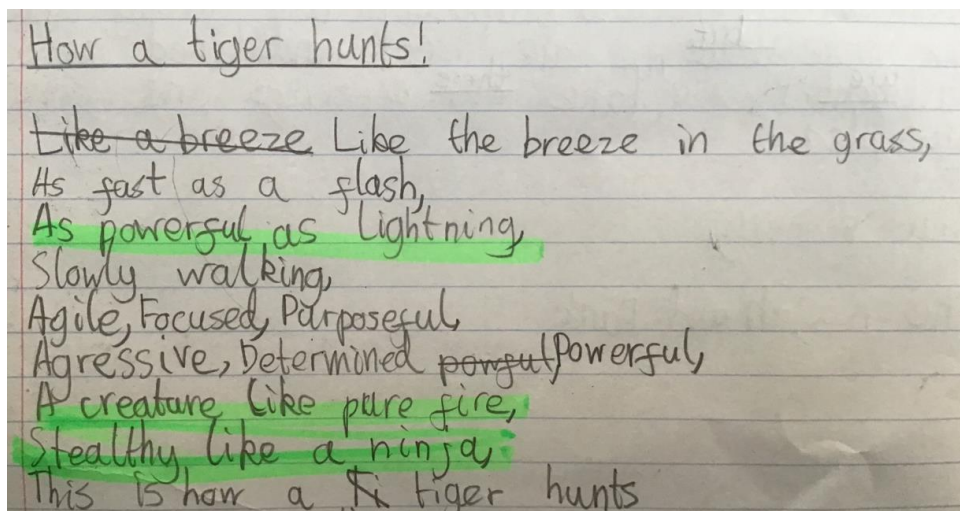 How a tiger hunts!
Like a breeze Like the breeze in the grass,
As fast as a flash,
As powerful as lightning,
Slowly walking,
Agile, Focused, Purposeful,
Agressive, Determined powful Powerful,
A creature like pure fire,
Stealthy like a ninja,
This is how a Ti tiger hunts